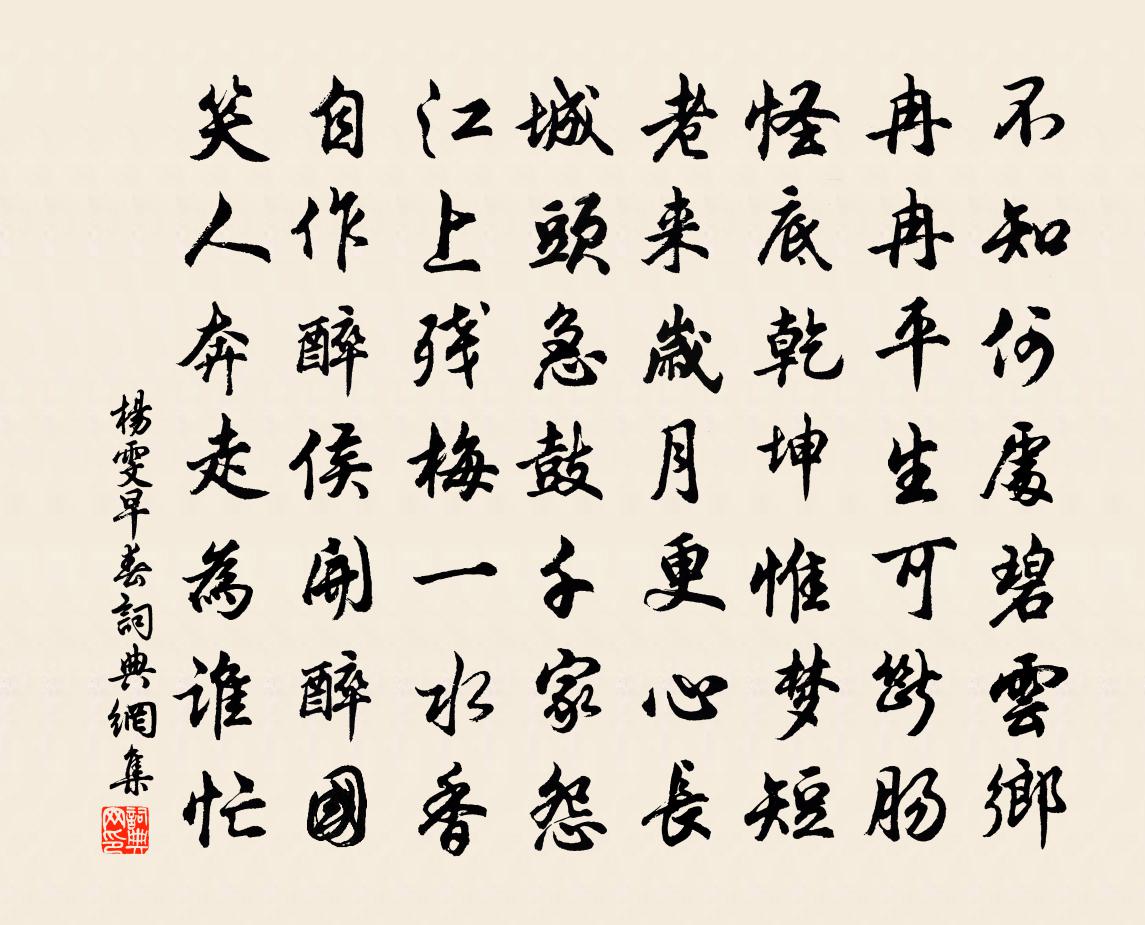 不知何處碧雲鄉
冉冉平生可斷腸
怪底乾坤惟梦短
老来歲月更心長
城頭急鼓千家怨
江上残梅一水香
自作醉侯開醉國
笑人奔走為誰忙
楊雯早春詞典網集
詞典网印